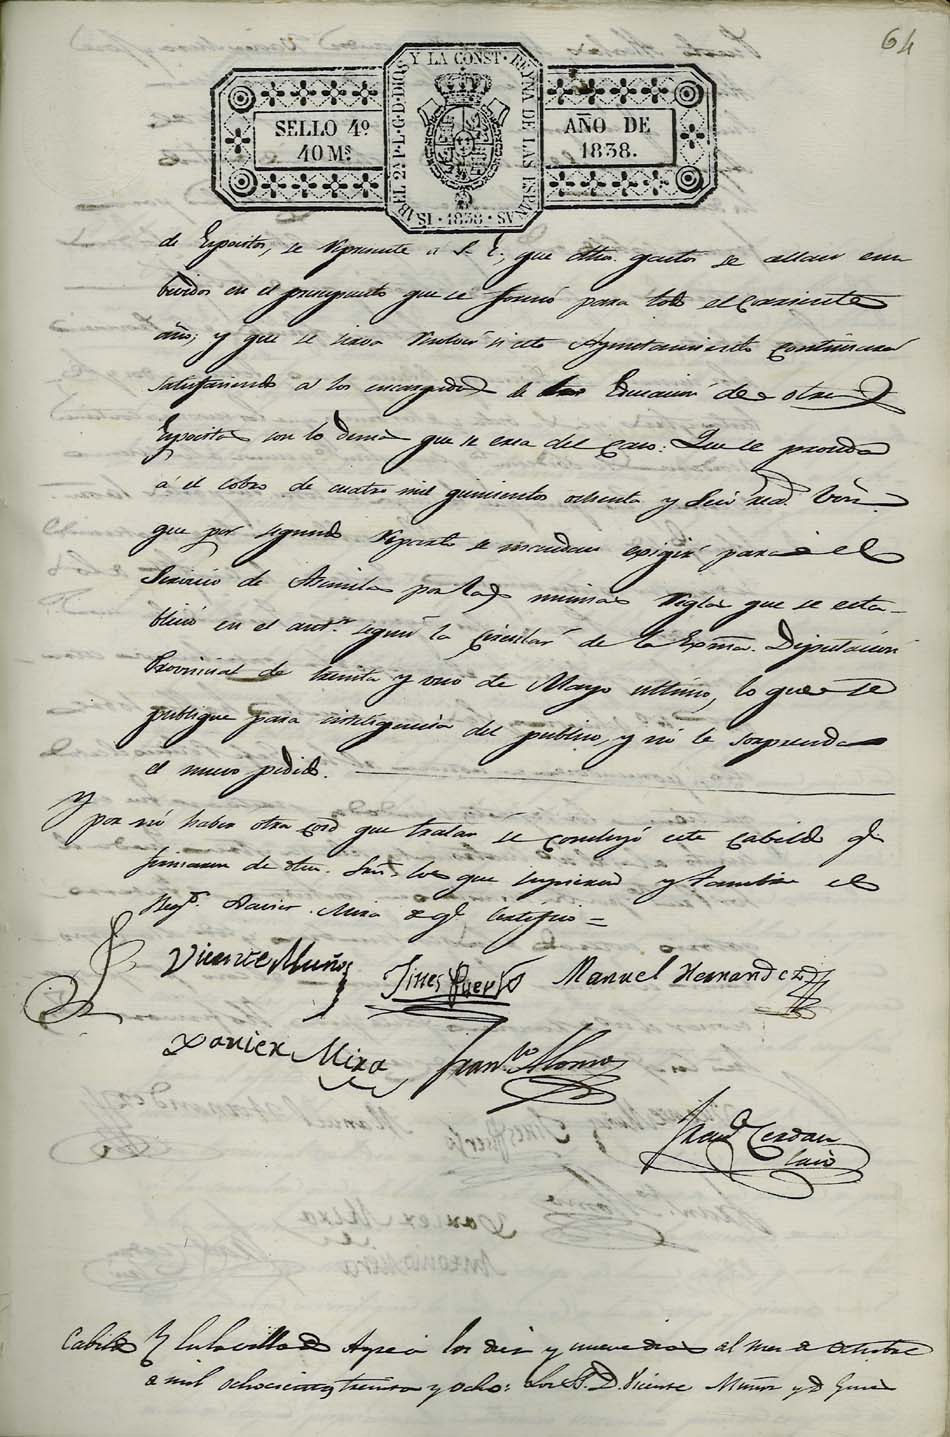 64
ISABEL 2ª P. L. G. D. DIOS Y LA CONST. REYNA DE LAS ESPAÑAS
SELLO 4º
40 Ms
AÑO DE
1838.
1838
de Expositos, se represente a S. E., que dhos. gastos se allan em
bevidos en el presupuesto que se formó para todo el corriente
año; y que se sirva si este Ayuntamiento continuará
satisfaciendo a los encargados de la Educación de otros
Expositos con lo demas que se crea del caso: Que se proceda
á el cobro de cuatro mil quinientos ochenta y seis rea.s Von.
que por segundo reparto se mandan exigir para el
Servicio de por las mismas reglas que se esta-
bleció en el antr. segun la Circular de la Exma. Diputación
Provincial de treinta y uno de Mayo ultimo, lo que se
publique para inteligencia del publico, y no le sorprenda
el nuevo pedido.
Y por no haber otra cosa que tratar se concluyó este Cabildo qe
firmaron de dhos. Sres. los que supieron y tambien el
Regr. Xavier Mira de qe. Certifico =
Vicente Muñoz
Gines Huerta
Manuel Hernandez
Xavier Mira
Franco. Alonso
Franco. Cerdan
Srio
Cabildo En la villa de Aspe a los diez y nueve dias del mes de Octubre
de mil ochocientos treinta y ocho: Los Ss. D. Vicente Muñoz y D. Gines